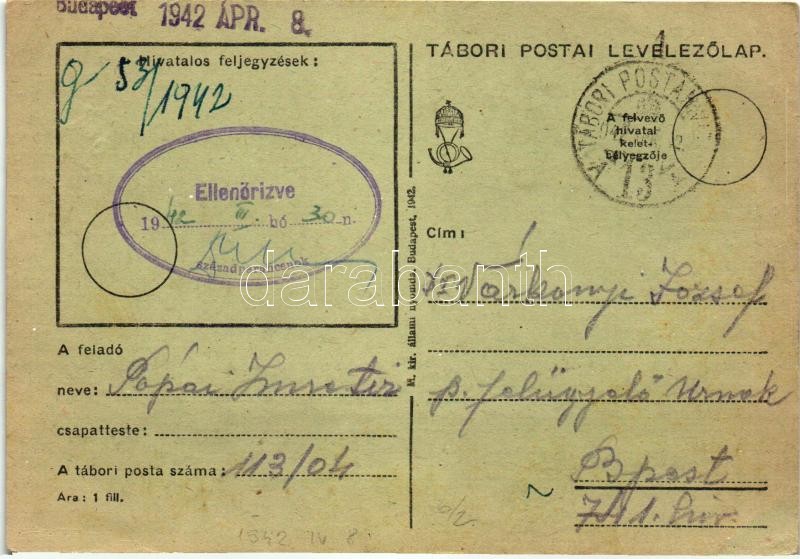 Budapest 1942 ÁPR. 8.
Hivatalos feljegyzések:
53/1942
Ellenőrizve
1942 III. hó 30-n.
századparancsnok
TÁBORI POSTAI LEVELEZŐLAP.
TÁBORI POSTA
A felvevő
hivatal
kelet-
bélyegzője
13
M. kir. állami nyomda, Budapest, 1942.
Cím:
Várkonyi József
p. felügyelő Urnak
Bpest
A feladó
neve: Pápai Imre
csapatteste:
A tábori posta száma: 113/04
Ara: 1 fill.
1942 IV 8
darabanth